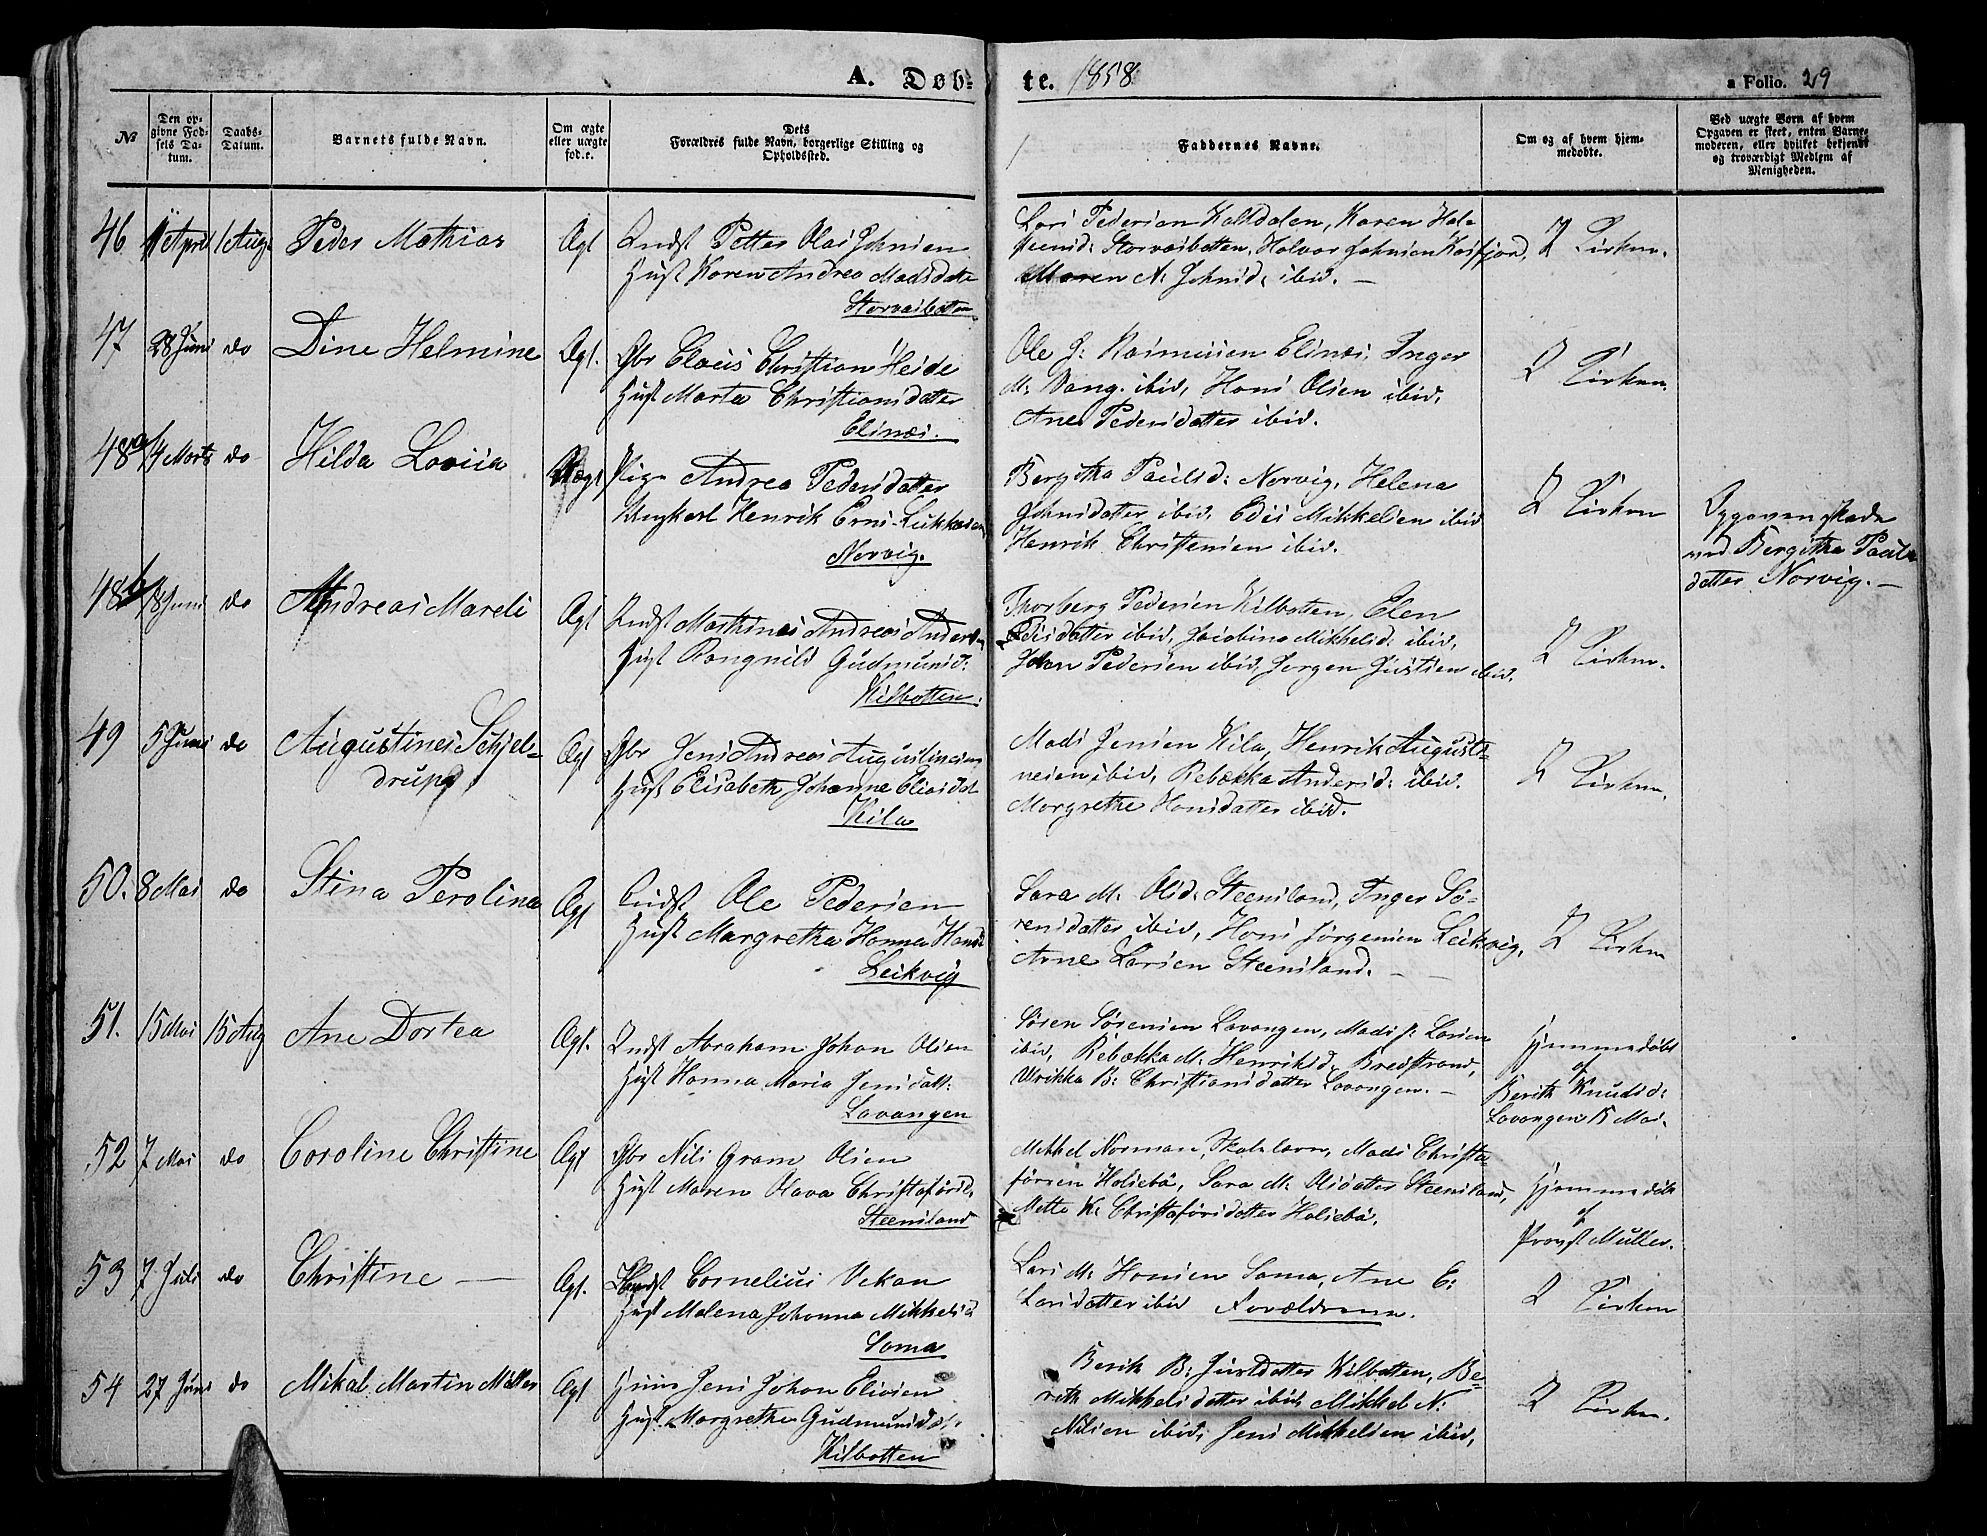 A. Døb-
te. 1858
a Folio. 29
№
Den op-
givne Fød-
sels Da-
tum.
Daabs-
Datum.
Barnets fulde Navn.
Om ægte
eller uægte
fød.e.
Dets
Forældres fulde Navn, borgerlige Stilling og
Opholdssted.
Faddernes Navne.
Om og af hvem hjem-
medøbte.
Ved uægte Børn af hvem
Opgaven er skeet, enten Barne-
moderen, eller hvilket bekjendt
og troværdigt Medlem af
Menigheden.
46 April 1 Aug. Peder Mathias Ægt
Indst Petter Olai Johnsen
Hust Karen Andrea Madsdatr
Storvasbotten
Lars Pedersen Kalddalen, Karen
Storvasbotten, Halvor Johnsen Kasfjord,
Maren N. Johnsd: ibid. —
I Kirken.
47 28 Juni do Dine Helmine Ægt.
Gbr Claus Christian Heide
Hust Marta Christiansdatter
Elinæs.
Ole J: Rasmussen Elinæs, Inger
M: Bang ibid, Hans Olsen ibid,
Ane Pedersdatter ibid.
I Kirken.
48a 4 Marts do Hilda Lovisa Uægt
Pige Andrea Pedersdatter
Ungkarl Henrik Erns. Lukkasen
Norvig.
Bergitha Paulsd: Norvig, Helena
Johnsdatter ibid, Edis Mikkelsen ibid
Henrik Christensen ibid.
I Kirken
Opgaven skede
ved Bergitha Pauls
datter Norvig. —
48b 8 Juni do Andreas Mareli Ægt
Indst Marthines Andreas Anders
Hust Rangnild Gudmunsd:
Kilbotten.
Thorberg Pedersen Kilbotten, Elen
Edisdatter ibid, Jacobina Mikkelsd: ibid,
Johan Pedersen ibid, Jørgen Justsen ibid.
I Kirken.
49 5 Juni do Augustines Schjel-
drup Ægt
Gbr Jens Andreas Augustinesen
Hust Elisabeth Johanne Eliasdat
Kila
Mads Jensen Kila, Henrik Augusti-
nesen ibid, Rebekka Andersd: ibid.
Margrethe Hansdatter ibid.
I Kirken.
50. 8 Mai do Stina Perolina Ægt
Indst Ole Pedersen
Hust Margretha Hanna Hansd
Leikvig
Sara M: Olsd: Steensland, Inger Sø-
rensdatter ibid, Hans Jørgensen Leikvig,
Arne Larsen Steensland. —
I Kirken
51. 15 Mai 15 Aug Ane Dortea Ægt.
Indst Abraham Johan Olsen
Hust Hanna Maria Jensdatt:
Lavangen
Søren Sørensen Lavangen, Mads P: Larsen
ibid, Rebekka M: Henriksd. Bredstrand,
Ulrikka B: Christiansdatter Lavangen. —
Hjemmedøbt
af
Berith Knudsd:
Lavangen 15 Mai.
52 7 Mai do Caroline Christine Ægt
Gbr Nils Gram Olsen
Hust Maren Olava Christoførsd.
Steensland
Mikkel Norman, Mads Christo-
førsen Halsebø, Sara M: Olsdatter Steensland,
Mette K: Christoførsdatter Halsebø.
Hjemmedøbt
af
Provst Müller.
53 7 Juli do Christine — Ægt.
Indst Cornelius Vekan
Hust Malena Johanna Mikkelsd
Sama
Lars M: Hansen Sama, Ane E:
Larsdatter ibid Forældrene.
I Kirken
54 27 Juni do Mikal Martin Müller Ægt
Huus Jens Johan Eliasen
Hust. Margrethe Gudmunsdat.
Kilbotten
Berit B: Justdatter Kilbotten, Be-
reth Mikkelsdatter ibid, Mikkel N:
Nilsen ibid, Jens Mikkelsen ibid,
I Kirken.